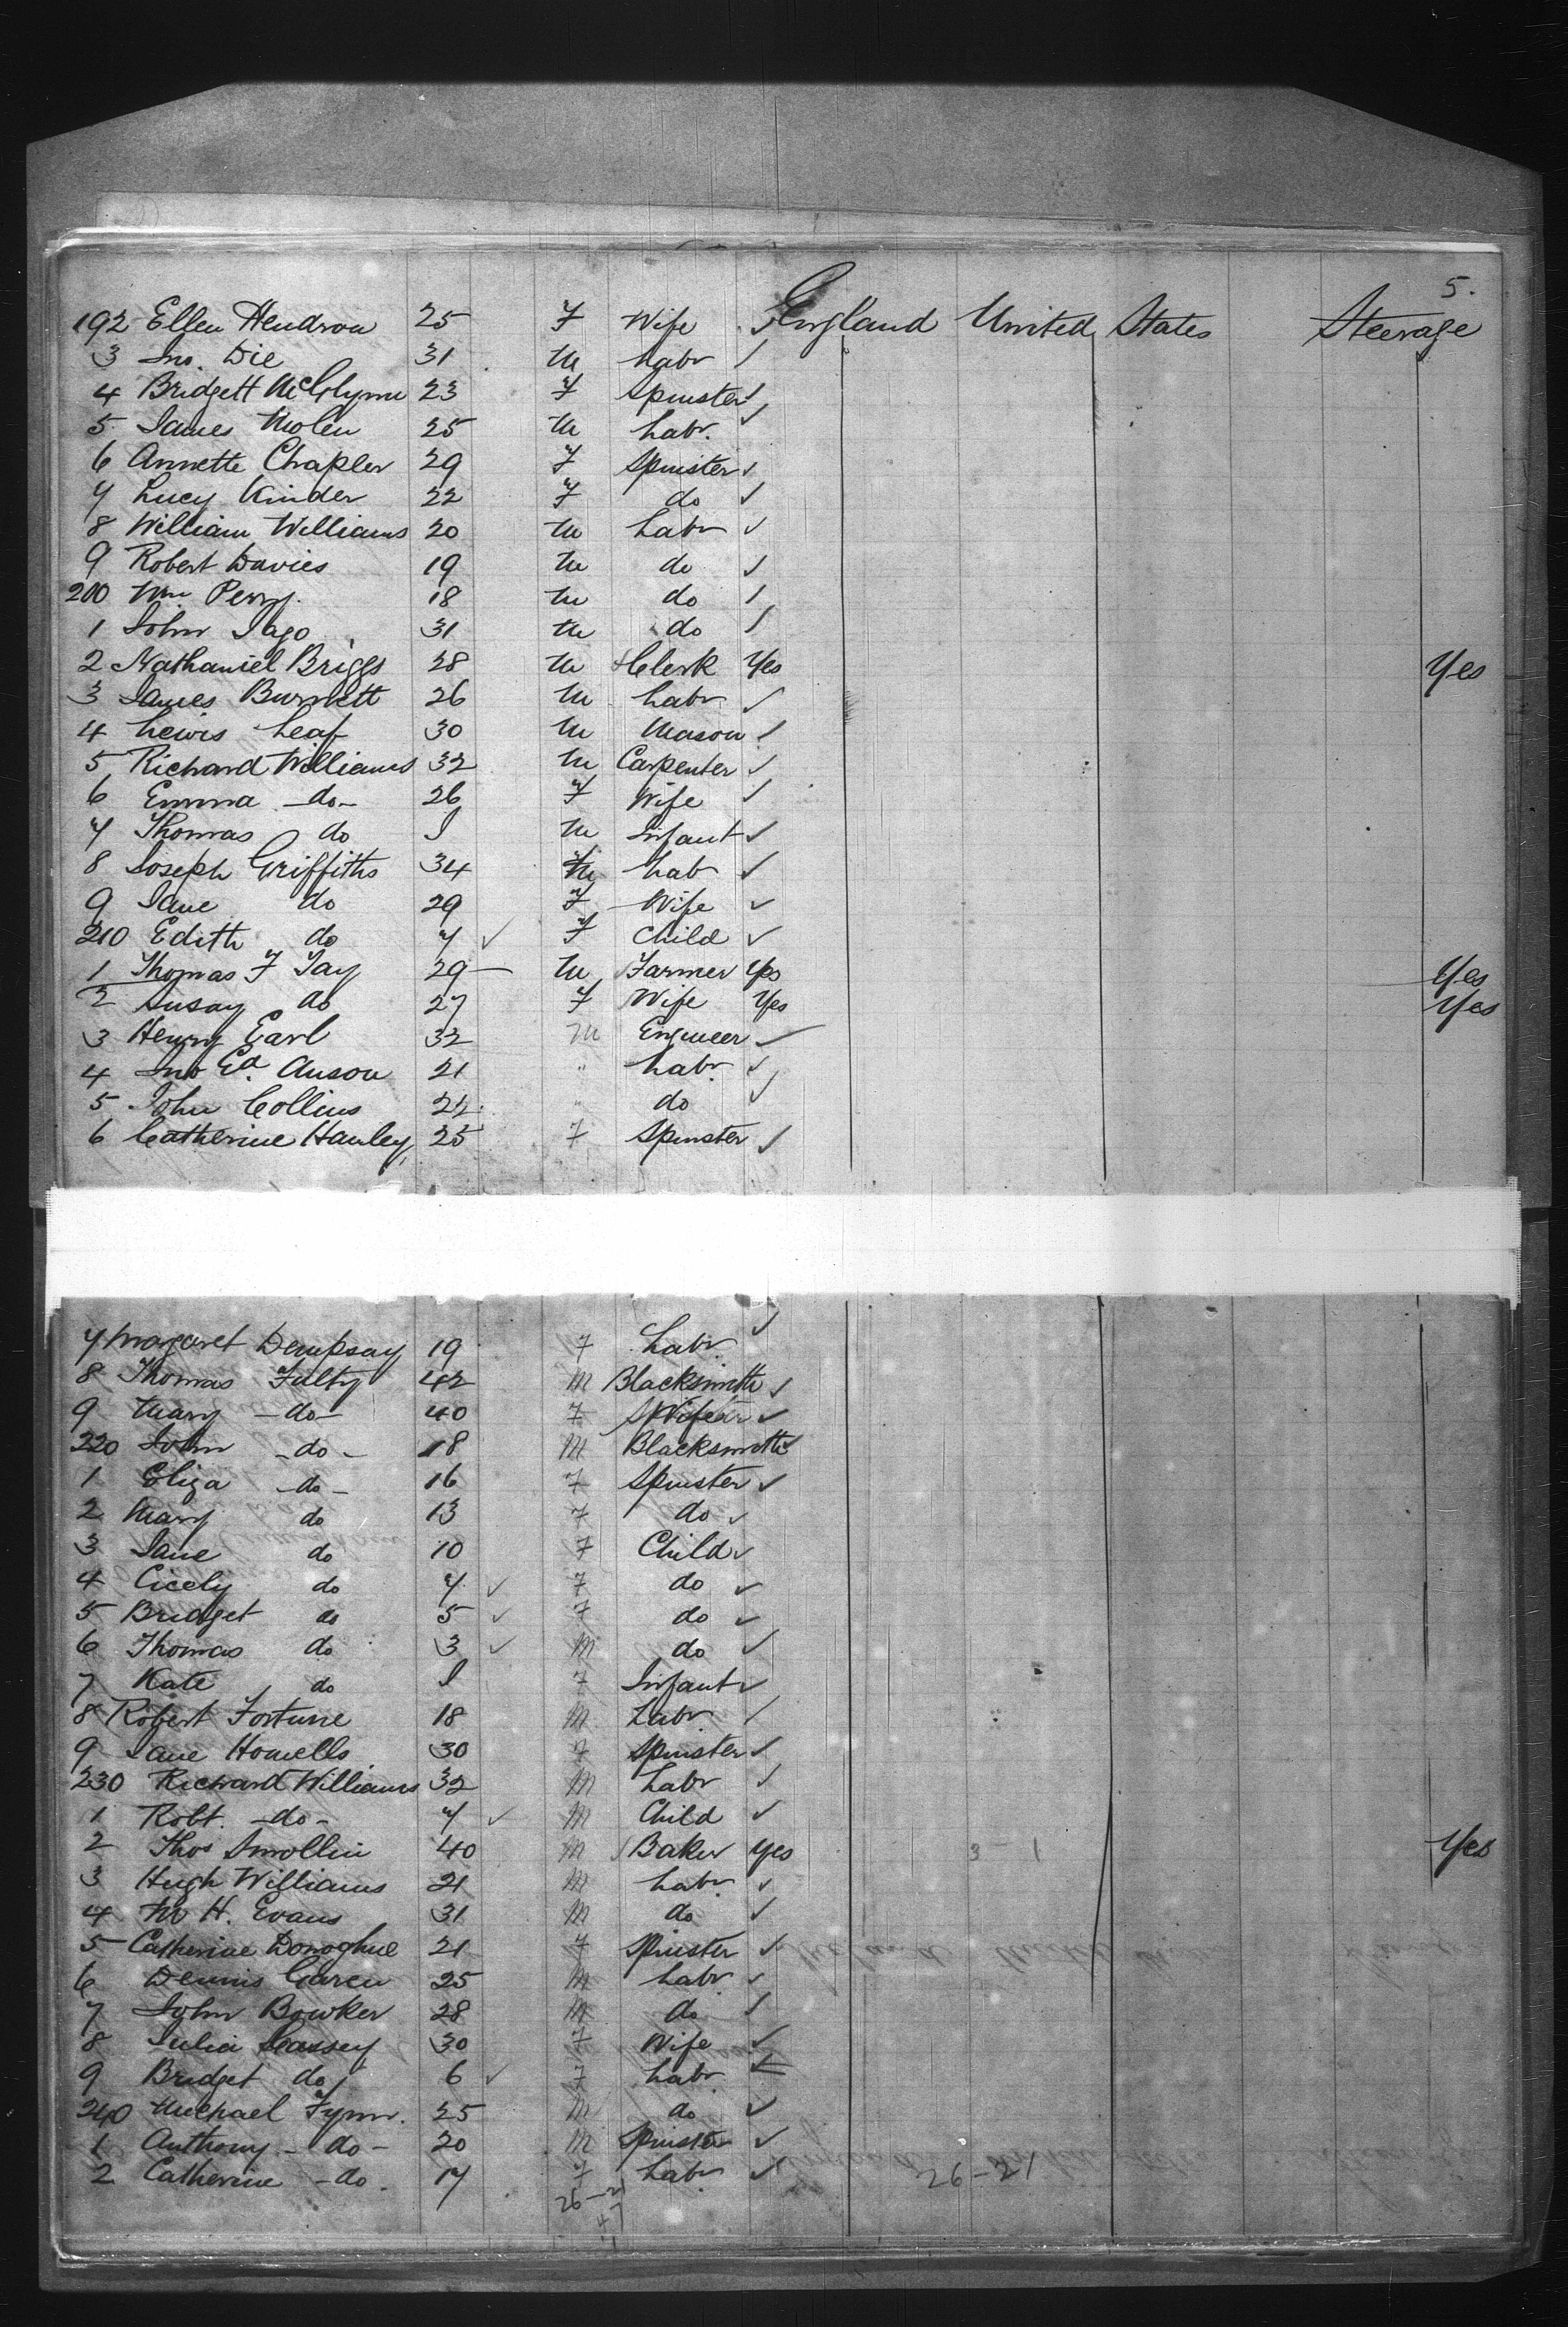 5.
192 Ellen Hendron 25 F Wife ✓ England United States Steerage
3 Jno. Die 31 M Labr
4 Bridgett McGlynn 23 F Spinster
5 James Molen 25 M Labr.
6 Annette Chapler 29 F Spinster
7 Lucy Kinder 22 F do
8 William Williams 20 M Labr
9 Robert Davies 19 M do
200 Wm Perry. 18 M do
1 John Jago 31 M do
2 Nathaniel Briggs 28 M Clerk Yes Yes
3 James Burnett 26 M Labr
4 Lewis Leaf 30 M Mason
5 Richard Williams 32 M Carpenter
6 Emma -do- 26 F Wife
7 Thomas do I M Infant
8 Joseph Griffiths 34 M Labr
9 Jane do 29 F Wife
210 Edith do 7 F Child
1 Thomas F Jay 29 M Farmer Yes Yes
2 Susay do 27 F Wife Yes Yes
3 Henry Earl 32 M Engineer
4 Jno Ed. Anson 21 " Labr
5 John Collins 22 " do
6 Catherine Hanley 25 F Spinster
7 Margaret Dempsay 19 F Labr
8 Thomas Fulty 42 M Blacksmith
9 Mary -do- 40 F Wife
220 John -do- 18 M Blacksmith
1 Eliza -do- 16 F Spinster
2 Mary do 13 F do
3 Jane do 10 F Child
4 Cicely do 7 F do
5 Bridget do 5 F do
6 Thomas do 3 M do
7 Kate do I F Infant
8 Robert Fortune 18 M Labr
9 Jane Howells 30 F Spinster
230 Richard Williams 32 M Labr
1 Robt. -do- 7 M Child
2 Thos Smollin 40 M Baker Yes 3 - 1 Yes
3 Hugh Williams 21 M Labr
4 H. Evans 31 M do
5 Catherine Donoghue 21 F Spinster
6 Dennis Caren 25 M Labr
7 John Bowker 28 M do
8 Julia Cassey 30 F Wife
9 Bridget do 6 F Labr
240 Michael Fynn. 25 M do
1 Anthony -do- 20 M Spinster
2 Catherine -do. 17 F Labr
26-21 26-21